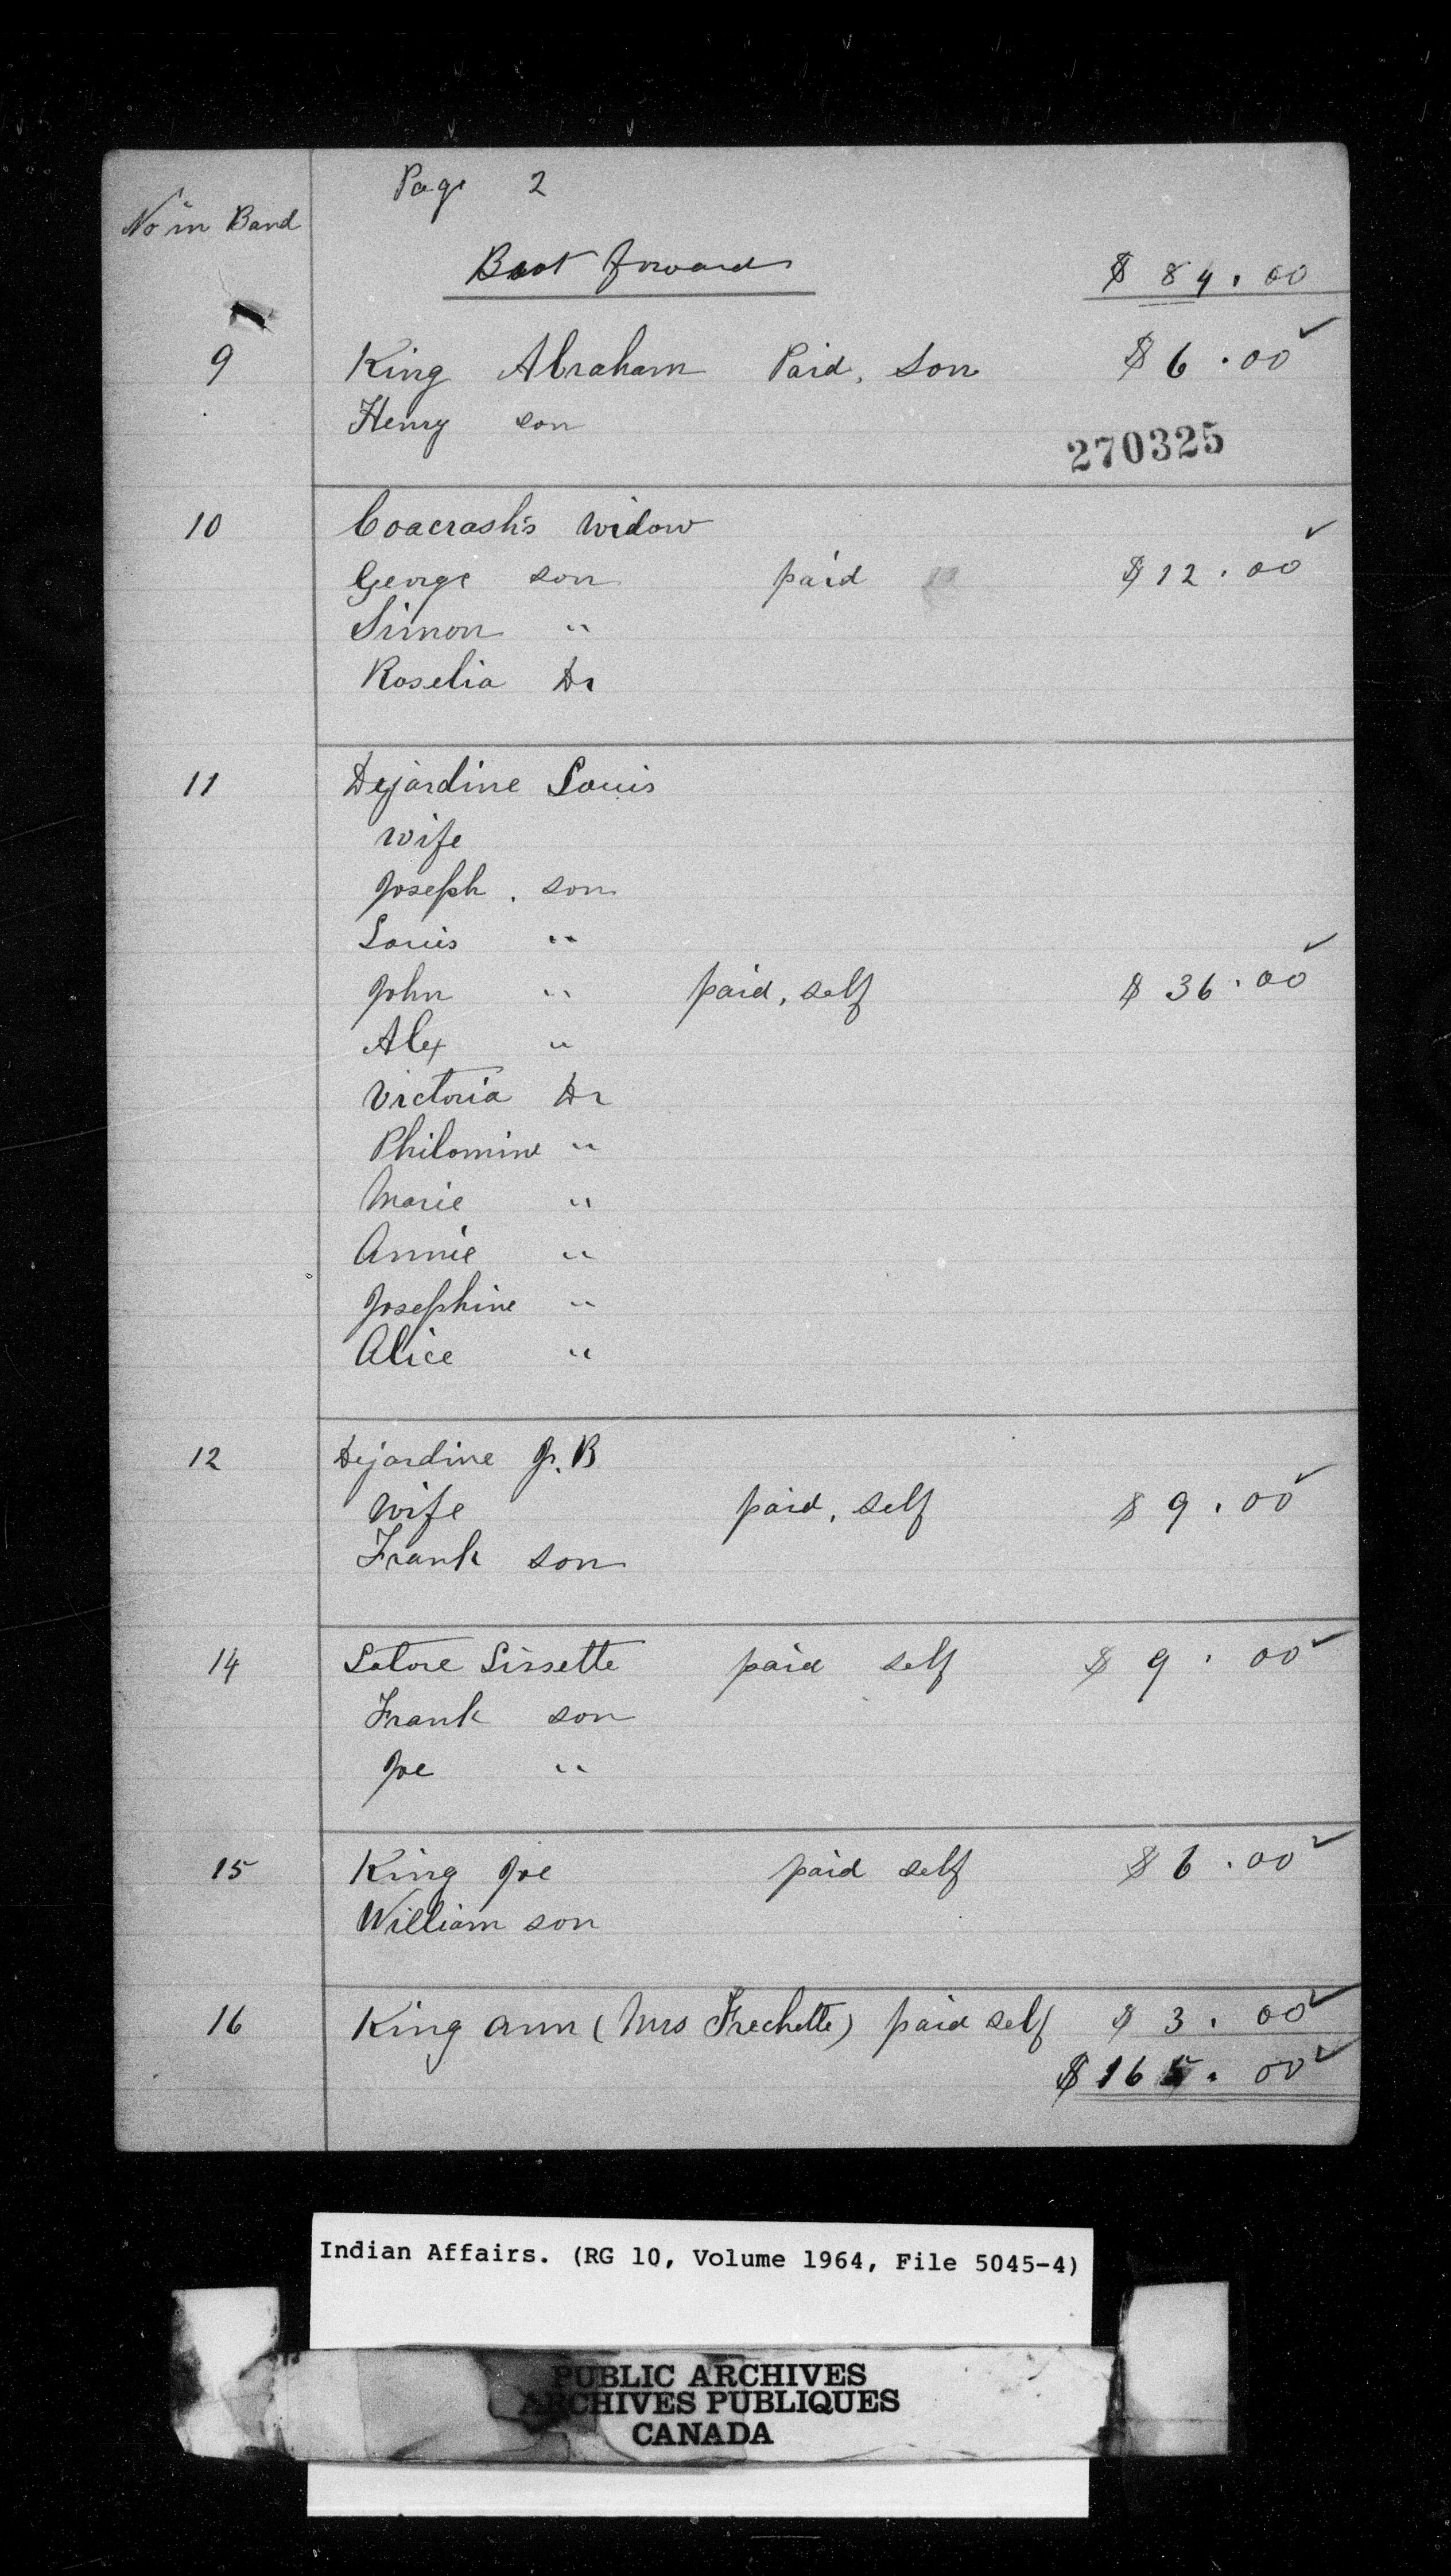 Page 2
No in Band
Brot forward $ 84.00
9 King Abraham Paid, Son $ 6.00
Henry son
270325
10 Coacrash's Widow
George son paid $ 12.00
Simon "
Roselia Dr
11 Dejardine Louis
wife
Joseph. son
Louis "
John " paid, self $ 36.00
Alex "
Victoria Dr
Philomine "
Marie "
Annie "
Josephine "
Alice "
12 Dejardine J. B
wife paid, self $ 9.00
Frank son
14 Latore Lissette paid self $ 9.00
Frank son
Joe "
15 King Joe paid self $ 6.00
William son
16 King Ann (Mrs Frechette) paid self $ 3.00
$ 165.00
Indian Affairs. (RG 10, Volume 1964, File 5045-4)
PUBLIC ARCHIVES
ARCHIVES PUBLIQUES
CANADA